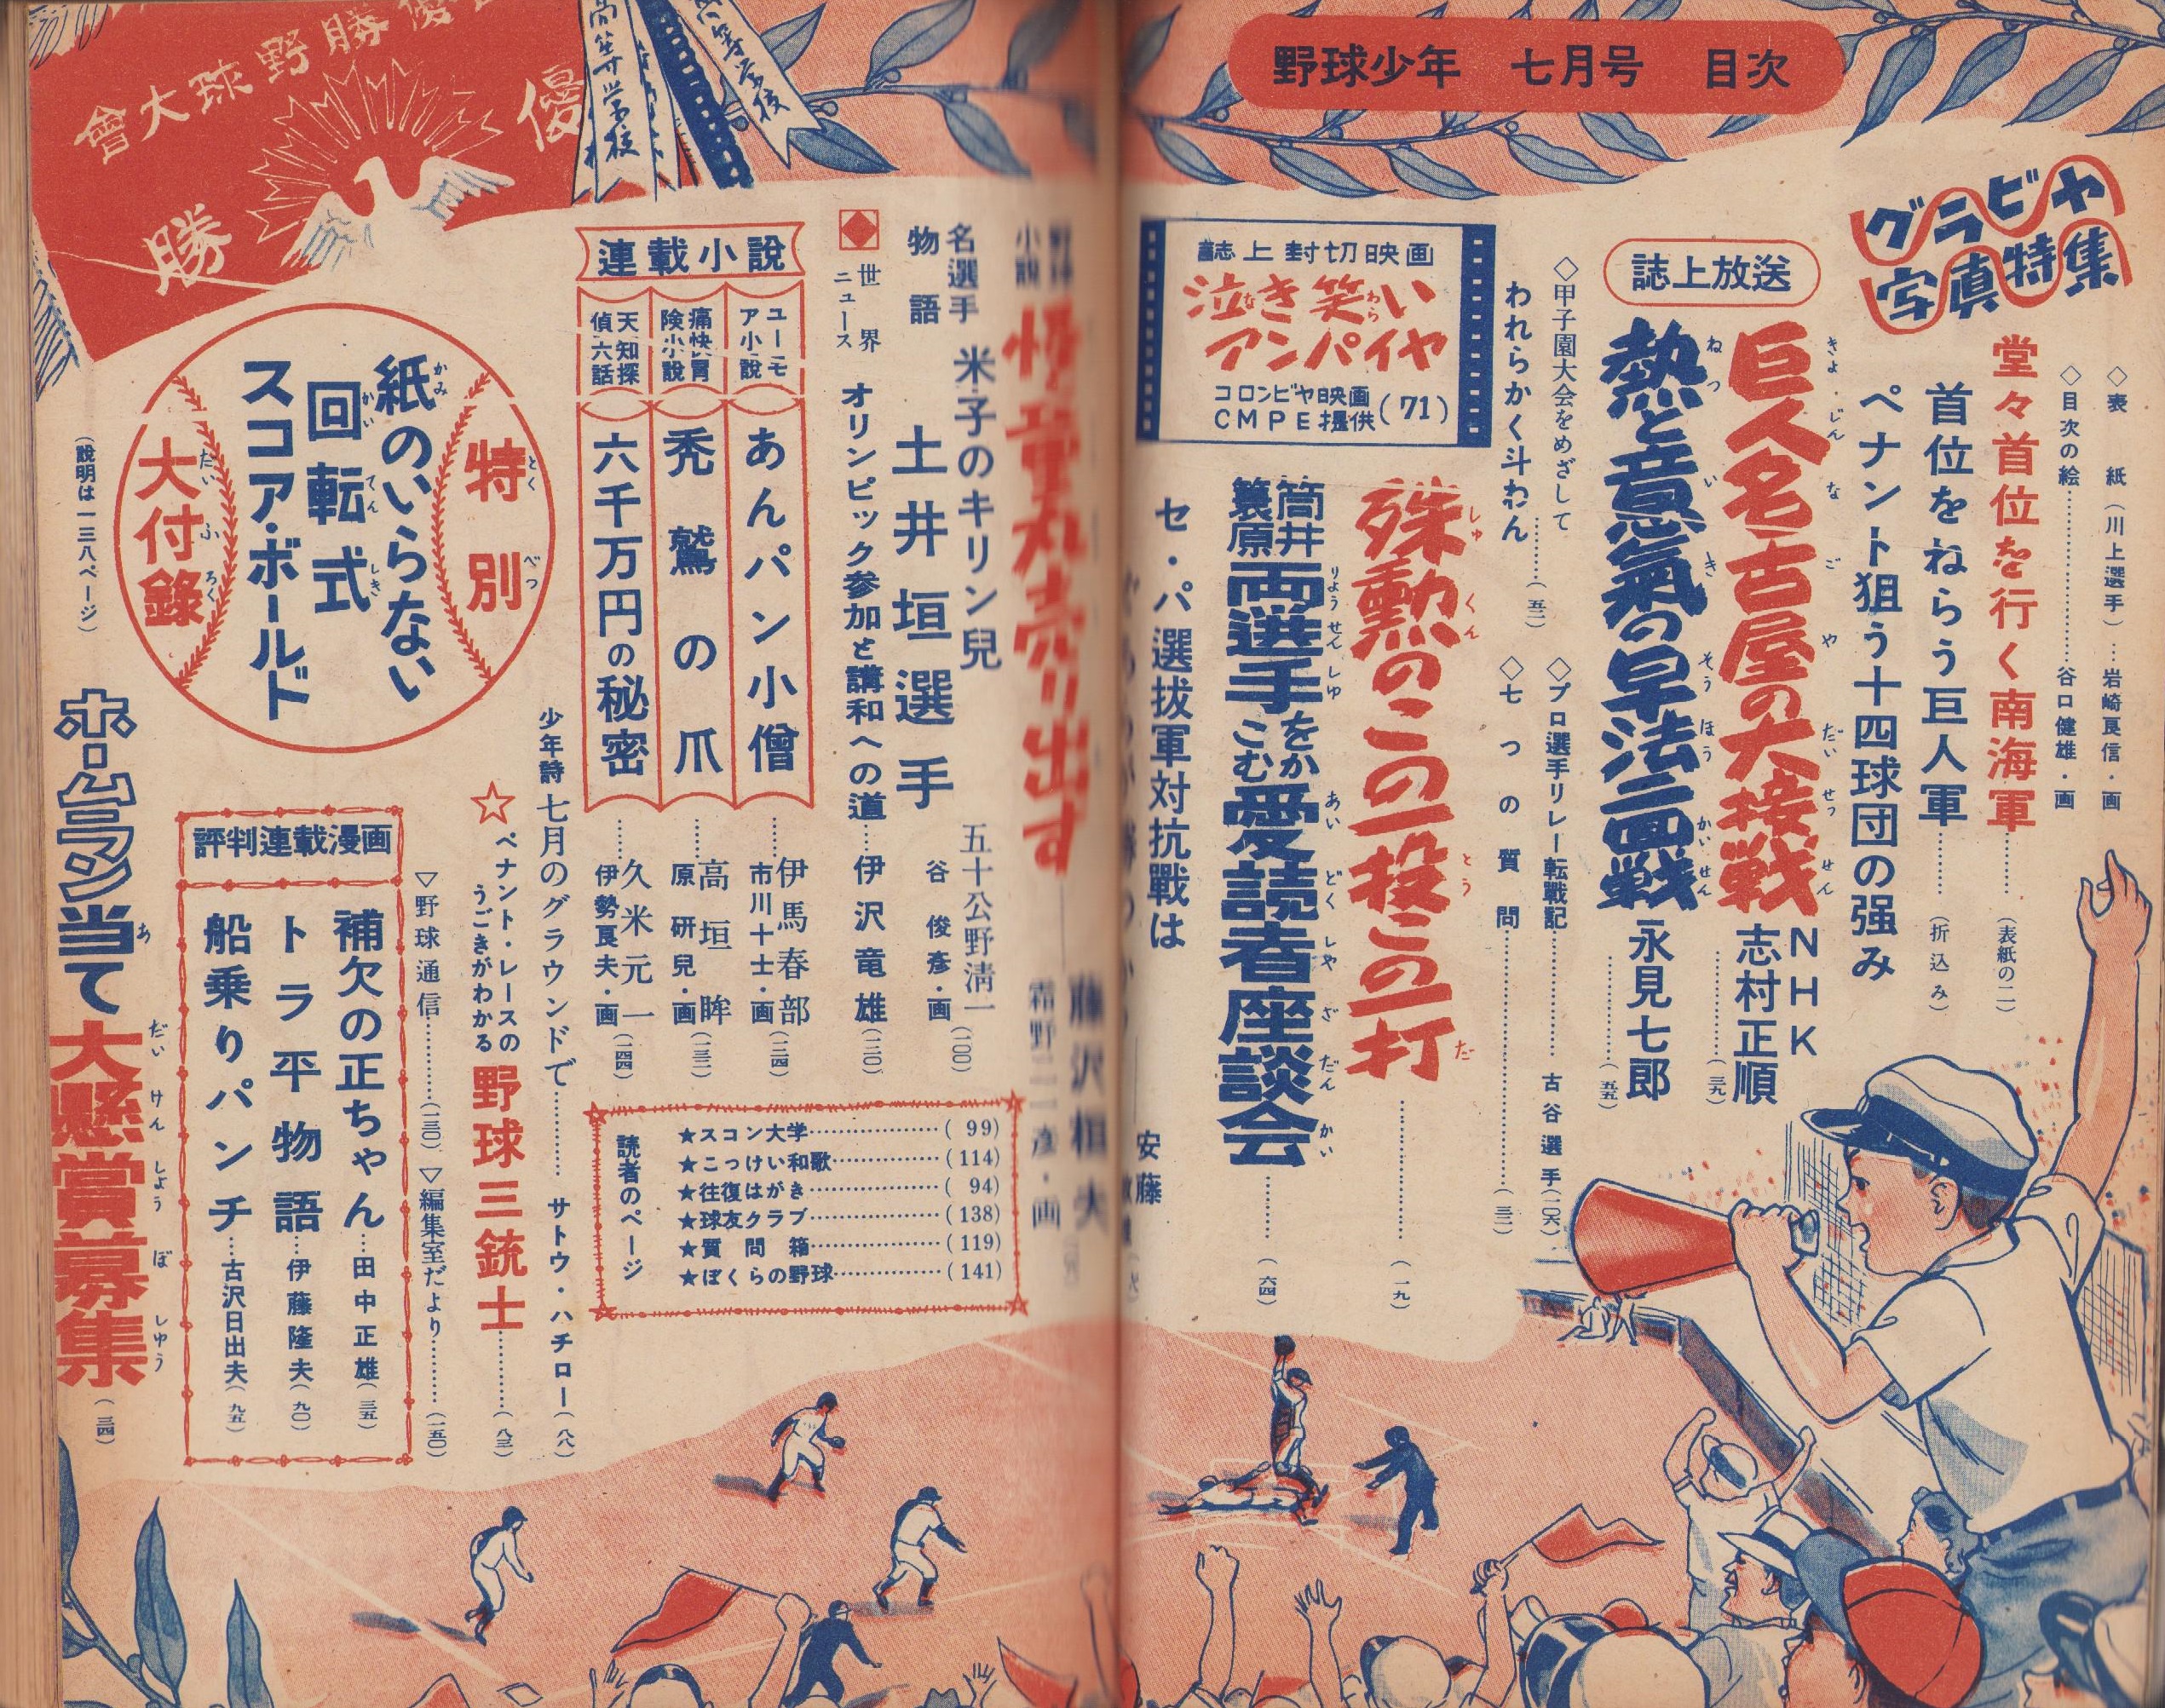 野球少年 七月号 目次
グラビヤ
写真特集
◇表 紙(川上選手)…岩崎良信・画
◇目次の絵……谷口健雄・画
堂々首位を行く南海軍……(表紙の二)
首位をねらう巨人軍……(折込み)
ペナント狙う十四球団の强み
誌上放送
巨人名古屋の大接戦
NHK
志村正順……(三九)
熱と意氣の早法二回戦
永見七郎……(五五)
◇甲子園大会をめざして
われらかく斗わん……(五二)
◇プロ選手リレー転戰記……古谷選手(一〇六)
◇七つの質問……(三二)
誌上封切映画
泣き笑い
アンパイヤ
コロンビヤ映画
CMPE提供(71)
殊勲のこの一投この一打……(一九)
筒井
簑原
両選手をかこむ愛読者座談会……(六四)
セ・パ選抜軍対抗戰は
安藤
売り出す
名選手
物語
米子のキリン兒
土井垣選手
五十公野淸一
谷俊彥・画
(一〇〇)
世界
ニュース
オリンピック参加と講和への道……伊沢竜雄(一三〇)
連載小説
ユーモア小説
あんパン小僧
伊馬春部
市川十士・画
(一二四)
痛快冐険小説
禿鷲の爪
高垣眸
原研兒・画
(一三二)
天知探偵六話
六千万円の秘密
久米元一
伊勢良夫・画
(一四四)
読者のページ
★スコン大学……(99)
★こっけい和歌……(114)
★往復はがき……(94)
★球友クラブ……(138)
★質問箱……(119)
★ぼくらの野球……(141)
少年詩 七月のグラウンドで……サトウ・ハチロー(八八)
☆ペナント・レースの
うごきがわかる
野球三銃士……(八三)
▽野球通信……(一三〇)
▽編集室だより……(一五〇)
特別
大付錄
紙のいらない
回転式
スコア・ボールド
(說明は一三八ページ)
評判連載漫画
補欠の正ちゃん…田中正雄(三五)
トラ平物語…伊藤隆夫(九〇)
船乗りパンチ…古沢日出夫(九五)
ホームラン当て大懸賞募集(三四)
會大球野勝優
優
勝
高等学校
高等学校